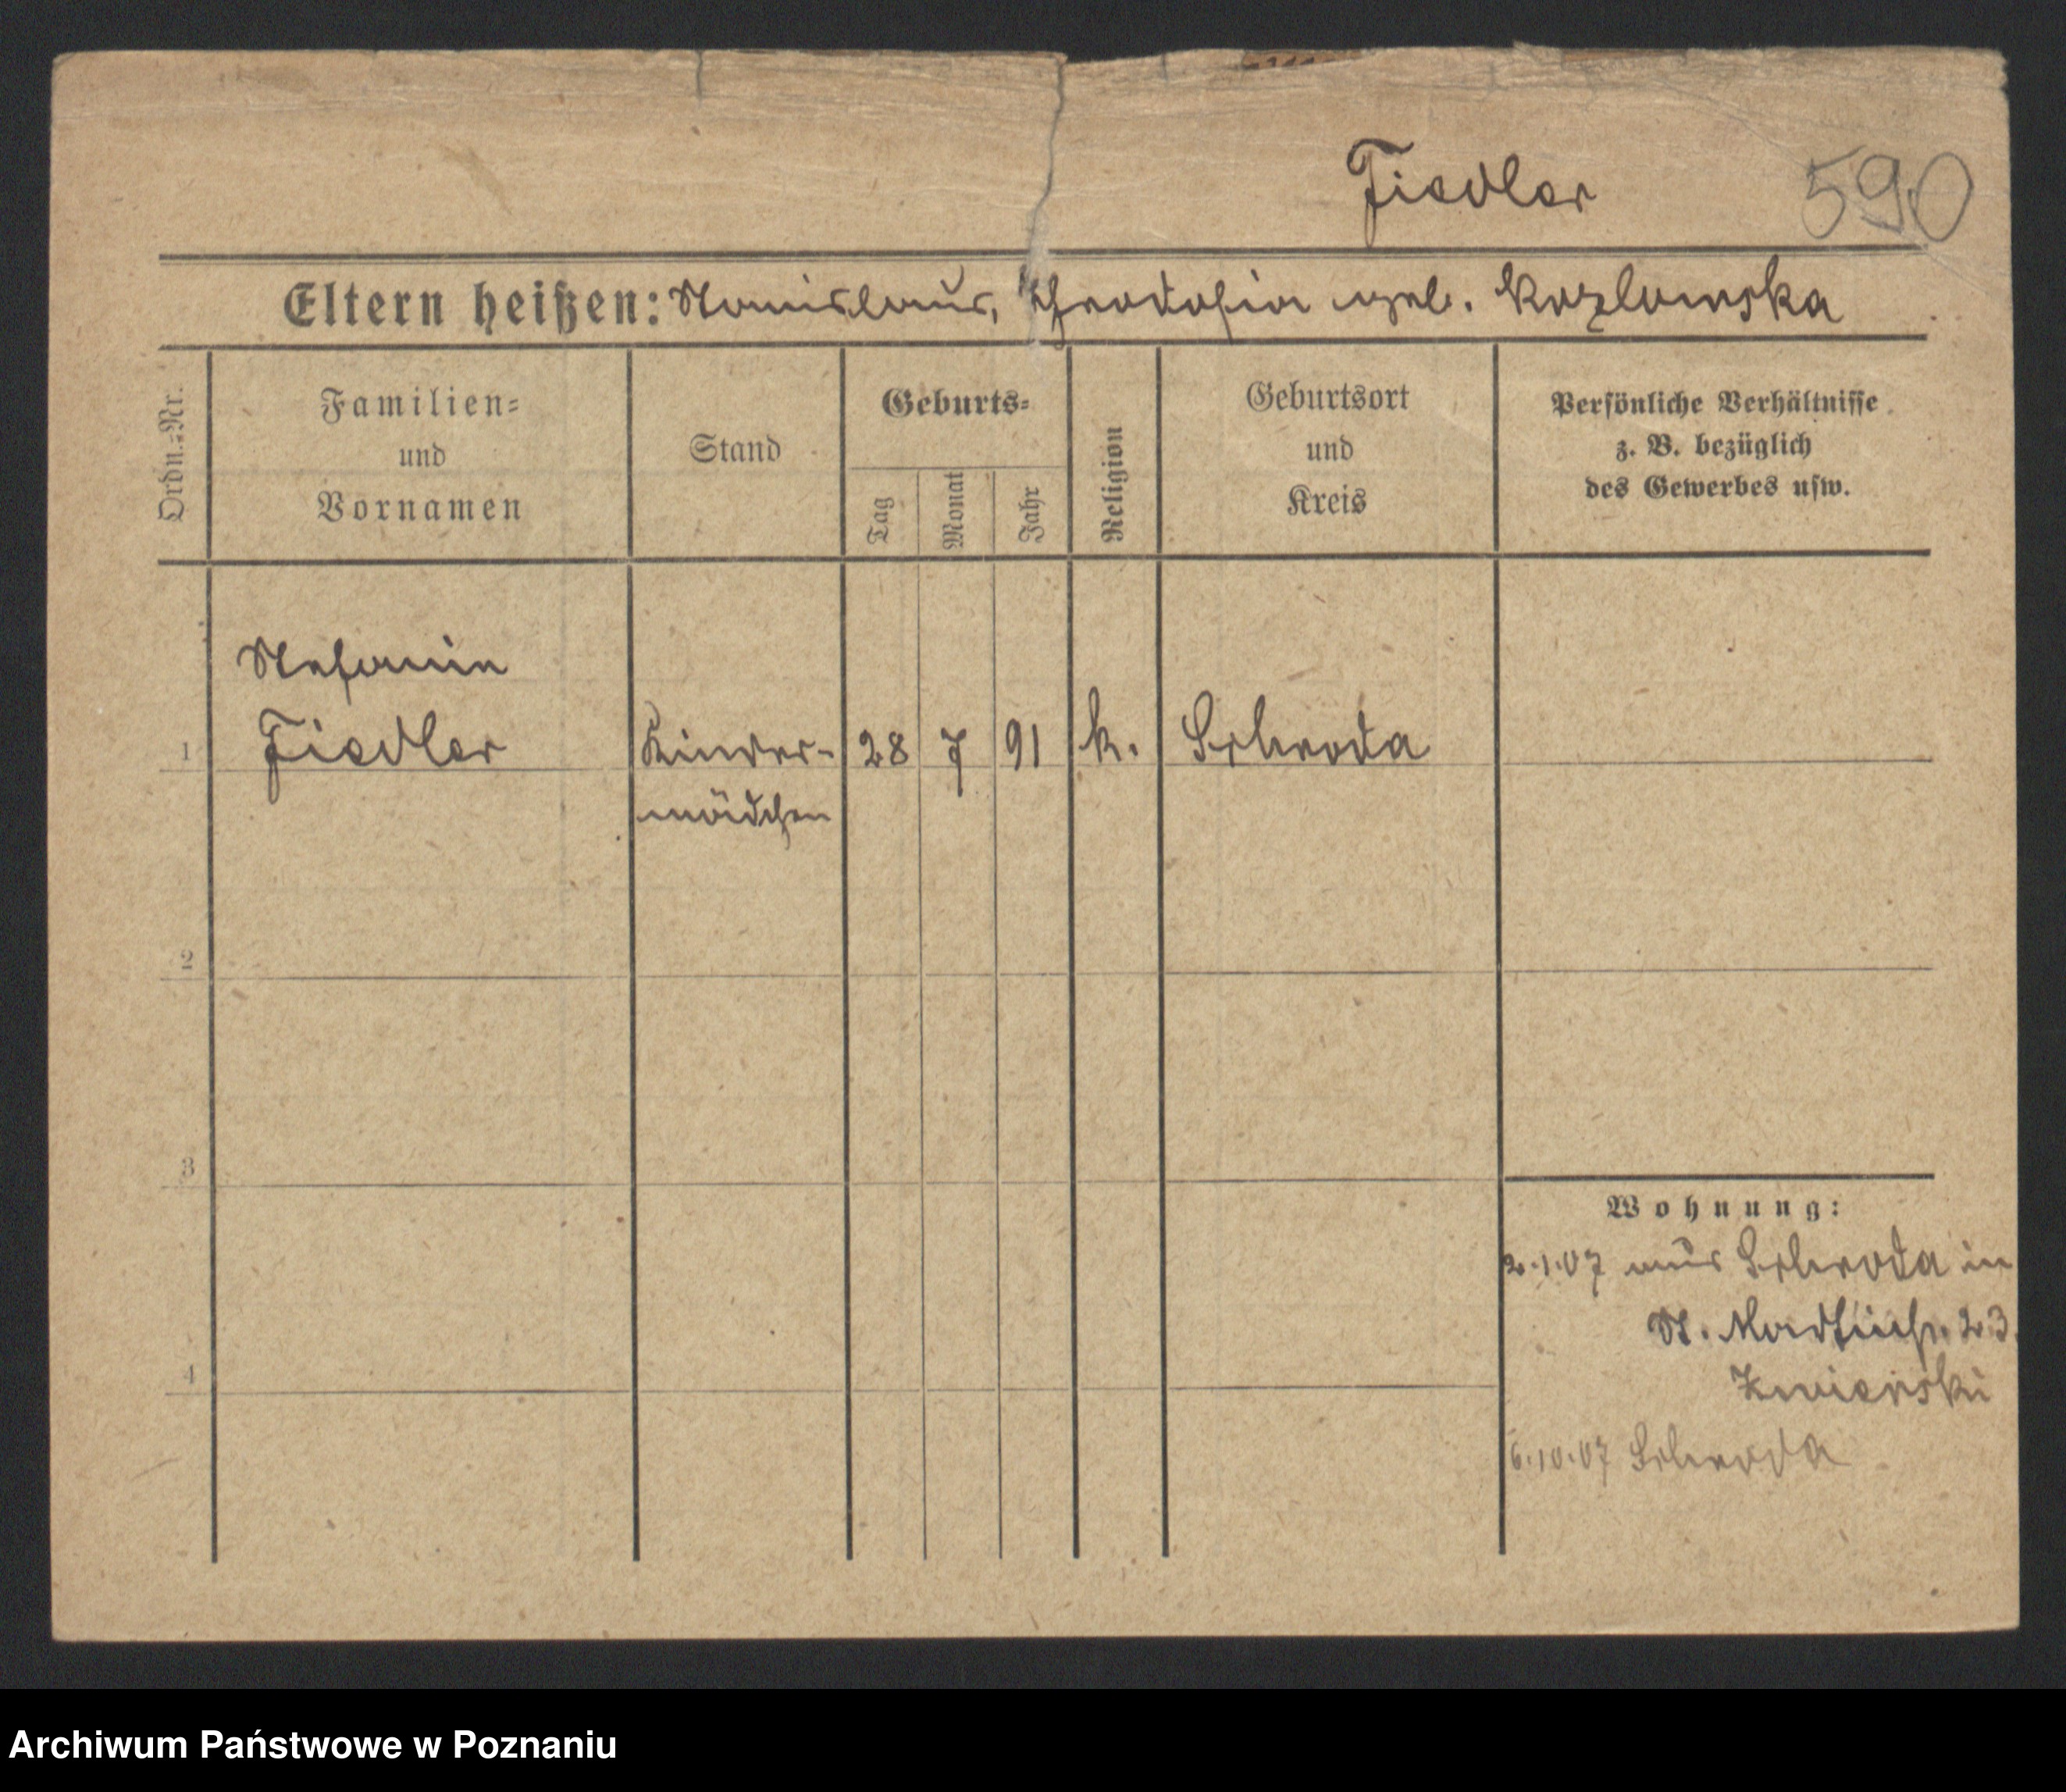 Fiedler
590
Eltern heißen: Stanislaus, Theodosia geb. Kozlowska
Ordn.-Nr.
Familien-
und
Vornamen
Stand
Geburts-
Tag
Monat
Jahr
Religion
Geburtsort
und
Kreis
Persönliche Verhältnisse
z. B. bezüglich
des Gewerbes usw.
Stefania
1 Fiedler Kinder- 28 7 91 k. Schroda
mädchen
2
3
Wohnung:
2.1.07 aus Schroda in
St. Martinstr. 23
4
6.10.07 Schroda
Archiwum Państwowe w Poznaniu